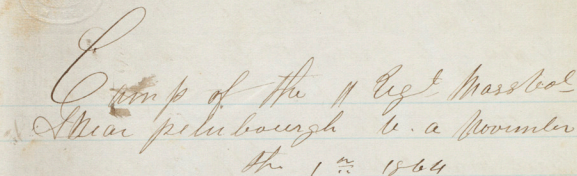 Camp of the 11 Regt Mass Vol
Near petubourgh v. a November
the 1n 1864